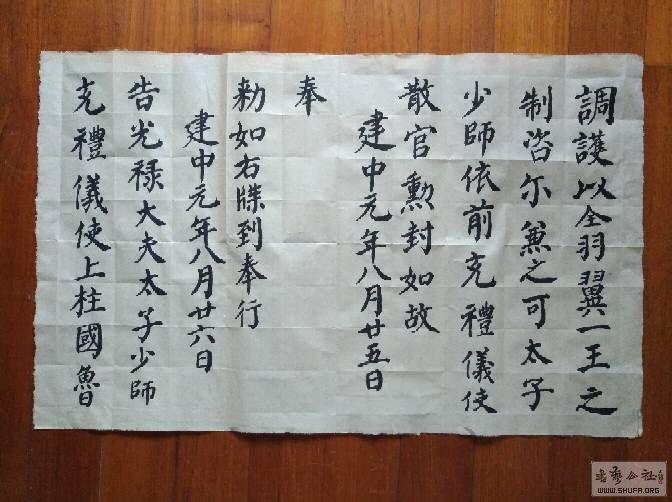 調護以全羽翼一王之
制咨尓兼之可太子
少師依前充禮儀使
散官勳封如故
建中元年八月廿五日
奉
勅如右牒到奉行
建中元年八月廿六日
告光禄大夫太子少師
充禮儀使上柱國魯
WWW.SHUFA.ORG